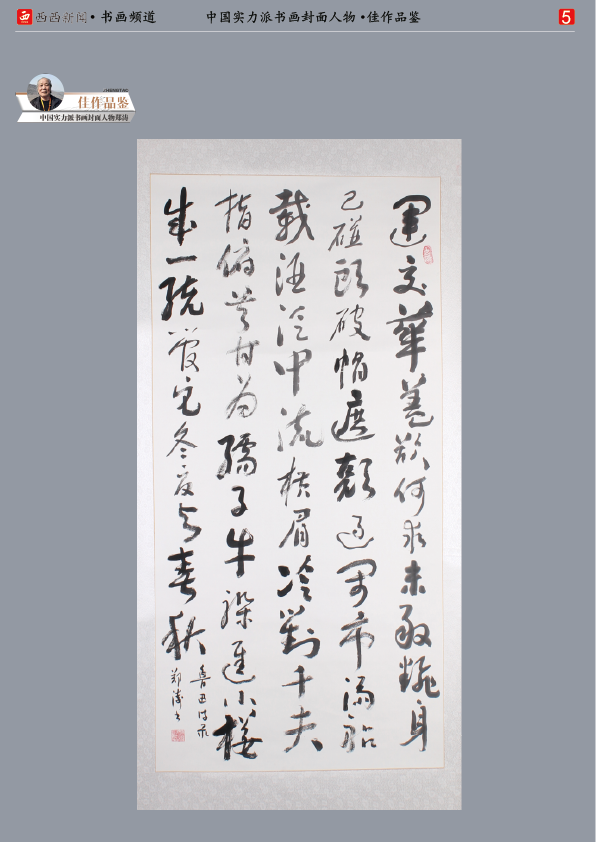 西西新闻•书画频道
中国实力派书画封面人物•佳作品鉴
5
ZHENGTAO
佳作品鉴
中国实力派书画封面人物郑涛
運交華蓋欲何求未敢翻身
已碰頭破帽遮顏過闹市漏船
載酒泛中流横眉冷對千夫
指俯首甘為孺子牛躲進小楼
成一統管它冬夏与春秋
魯迅诗
郑涛书